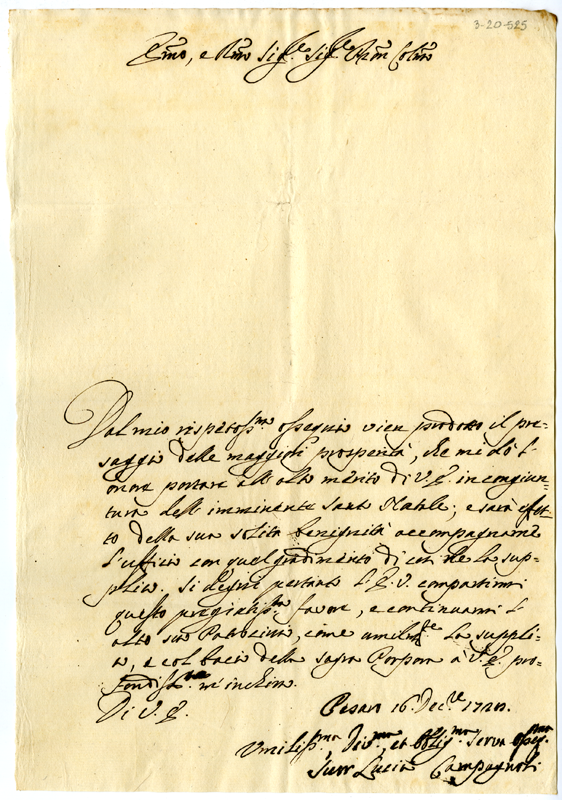 3-20-525
Emo, e Rmo Sigre Sigre Pron Colmo
Dal mio rispetossmo ossequio vien prodotto il pre=
saggio delle maggiori prosperità, che mi dò l'
onore portare all' alto merito di V. E. in congiun=
tura dell' imminente Santo Natale; e sarà effet=
to della sua solita benignità accompagnarne
l'ufficio con quel gradimento di cui ne la sup=
plico. Si degni pertanto l' E. V. compartirmi
questo pregiatissmo favore, e continuarmi l'
alto suo Patrocinio, come umilmte la suppli=
co, e col bacio della sagra Porpora à V. E. pro=
fondissmte m' inchino.
Di V. E.
Pesaro 16 Decre
Umilissma, Divma, et Obligma Serva
Suor Lucia Campagnoli